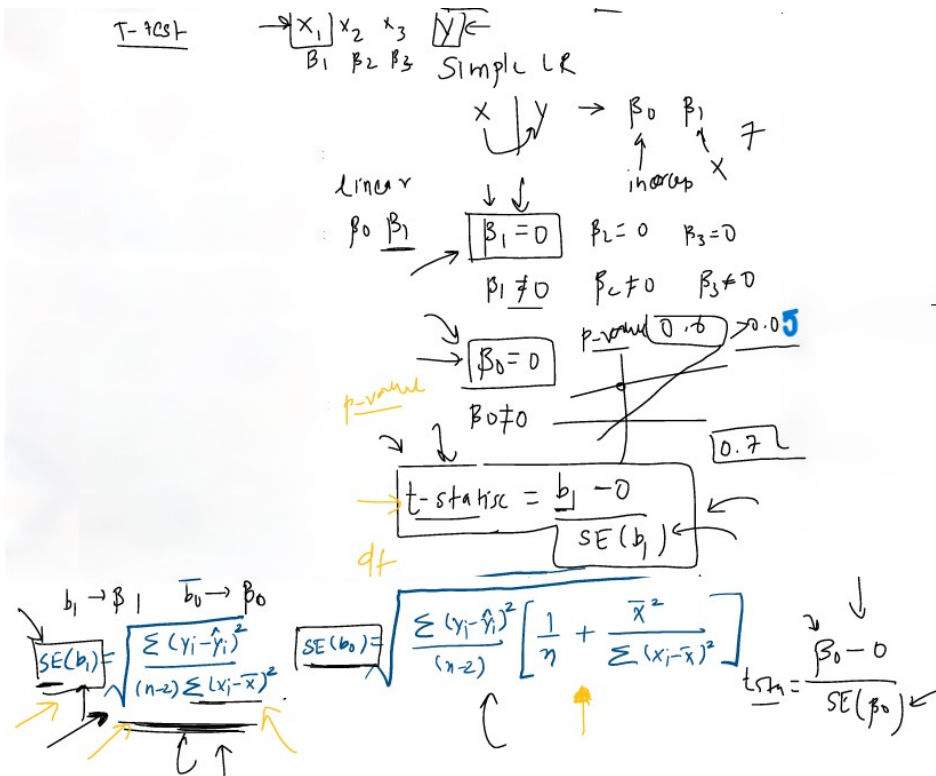 T-test → x₁ x₂ x₃ y ←
β₁ β₂ β₃ Simple LR
x y → β₀ β₁ 7
incercep x
linear
β₀ β₁ β₁ = 0 β₂ = 0 β₃ = 0
β₁ ≠ 0 β₂ ≠ 0 β₃ ≠ 0
p-value 0.6 > 0.05
β₀ = 0
p-value
β₀ ≠ 0
0.7
t-statisc = (b₁ - 0) / SE(b₁)
df
b₁ → β₁ b₀ → β₀
SE(b₁) = √( Σ(yᵢ-ŷᵢ)² / (n-2) Σ(xᵢ-x̄)² ) SE(b₀) = √( Σ(yᵢ-ŷᵢ)² / (n-2) [ 1/n + x̄² / Σ(xᵢ-x̄)² ] ) tsta = (β₀ - 0) / SE(β₀)